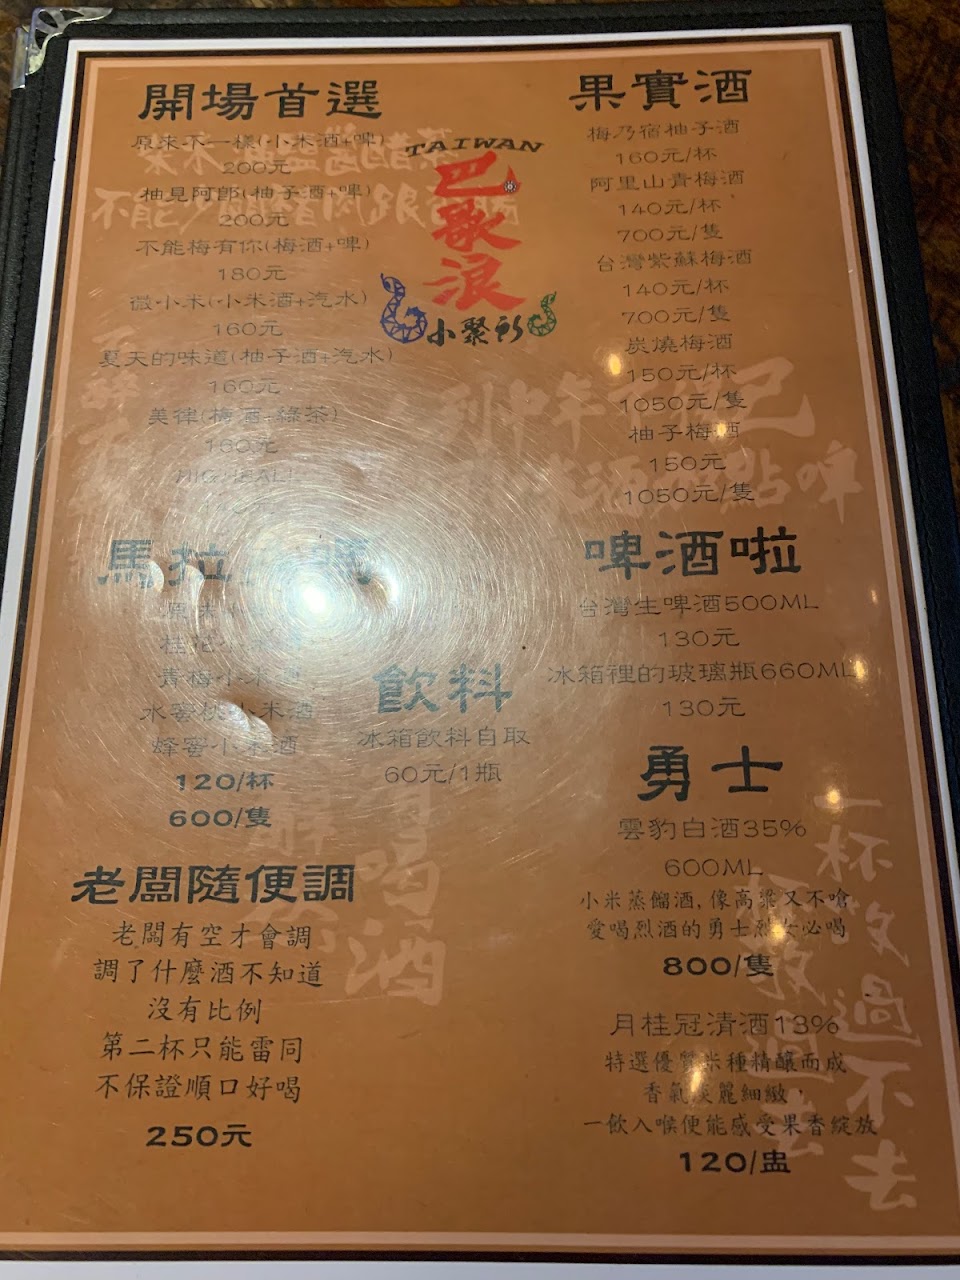 開場首選
原來不一樣(小米酒+啤)
200元
柚見阿郎(柚子酒+啤)
200元
不能梅有你(梅酒+啤)
180元
微小米(小米酒+汽水)
160元
夏天的味道(柚子酒+汽水)
160元
美律(梅酒+綠茶)
160元
TAIWAN
巴歌浪
小聚所
果實酒
梅乃宿柚子酒
160元/杯
阿里山青梅酒
140元/杯
700元/隻
台灣紫蘇梅酒
140元/杯
700元/隻
炭燒梅酒
150元/杯
1050元/隻
柚子梅酒
150元
1050元/隻
馬拉
原味小
桂花小
青梅小米
水蜜桃小米酒
蜂蜜小米酒
120/杯
600/隻
飲料
冰箱飲料自取
60元/1瓶
啤酒啦
台灣生啤酒500ML
130元
冰箱裡的玻璃瓶660ML
130元
勇士
雲豹白酒35%
600ML
小米蒸餾酒,像高粱又不嗆
愛喝烈酒的勇士烈女必喝
800/隻
月桂冠清酒13%
特選優質米種精釀而成
香氣淡麗細緻，
一飲入喉便能感受果香綻放
120/盅
老闆隨便調
老闆有空才會調
調了什麼酒不知道
沒有比例
第二杯只能雷同
不保證順口好喝
250元